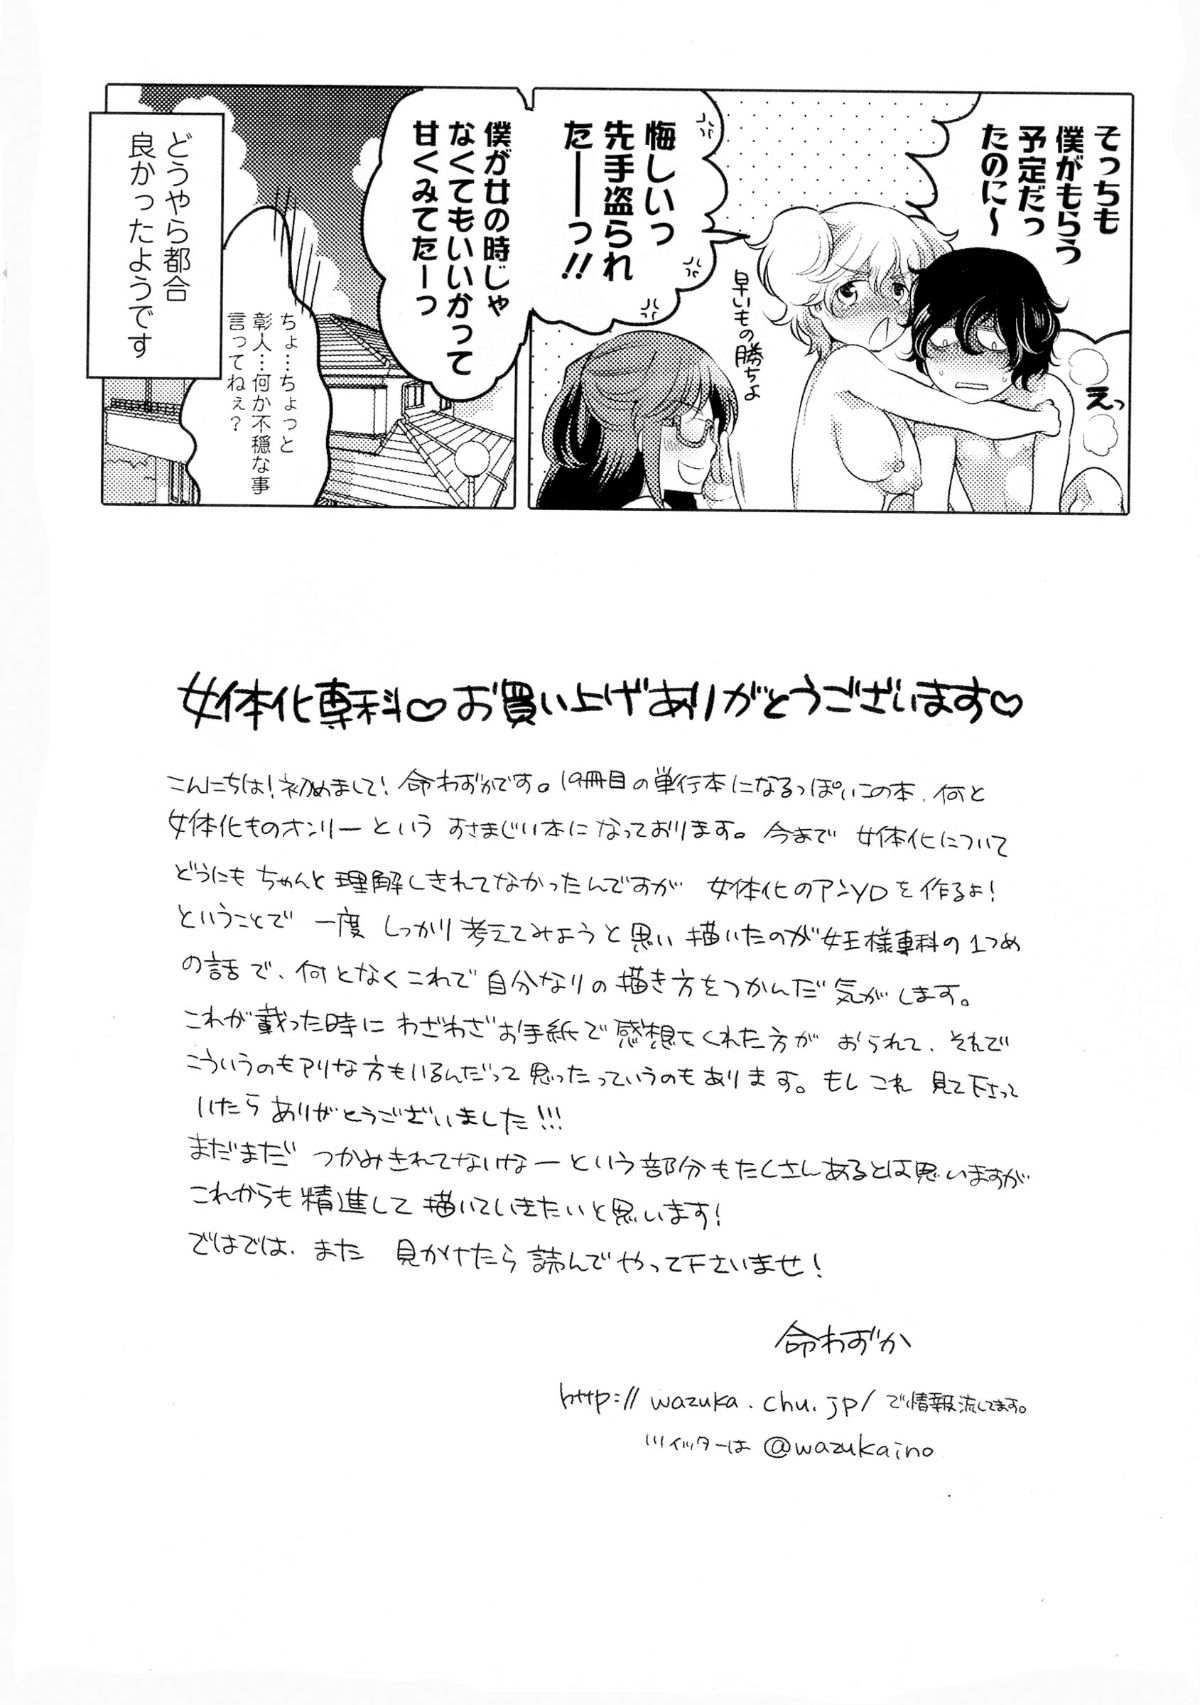 そっちも
僕がもらう
予定だっ
たのに～
えっ
悔しいっ
先手盗られ
たーーっ!!
早いもの勝ちよ
僕が女の時じゃ
なくてもいいかって
甘くみてたーっ
ちょ…ちょっと
彰人…何か不穏な事
言ってねぇ?
どうやら都合
良かったようです
女体化専科♡お買い上げありがとうございます♡
こんにちは!初めまして!命わずかです。19冊目の単行本になるっぽいこの本、何と
女体化ものオンリーという すさまじい本になっております。今まで 女体化について
どうにもちゃんと理解しきれてなかったんですが 女体化のアンソロを作るよ!
ということで 一度 しっかり考えてみようと思い描いたのが女王様専科の1つめ
の話で、何となくこれで自分なりの描き方をつかんだ気がします。
これが載った時にわざわざお手紙で感想をくれた方が おられて、それで
こういうのもアリな方もいるんだって思ったっていうのもあります。もしこれ 見て下さって
いたらありがとうございました!!!
まだまだ つかみきれてないなーという部分もたくさんあるとは思いますが
これからも精進して描いていきたいと思います!
ではでは、また 見かけたら読んでやって下さいませ!
命わずか
http://wazuka.chu.jp/で情報流してます。
ツイッターは @wazukaino